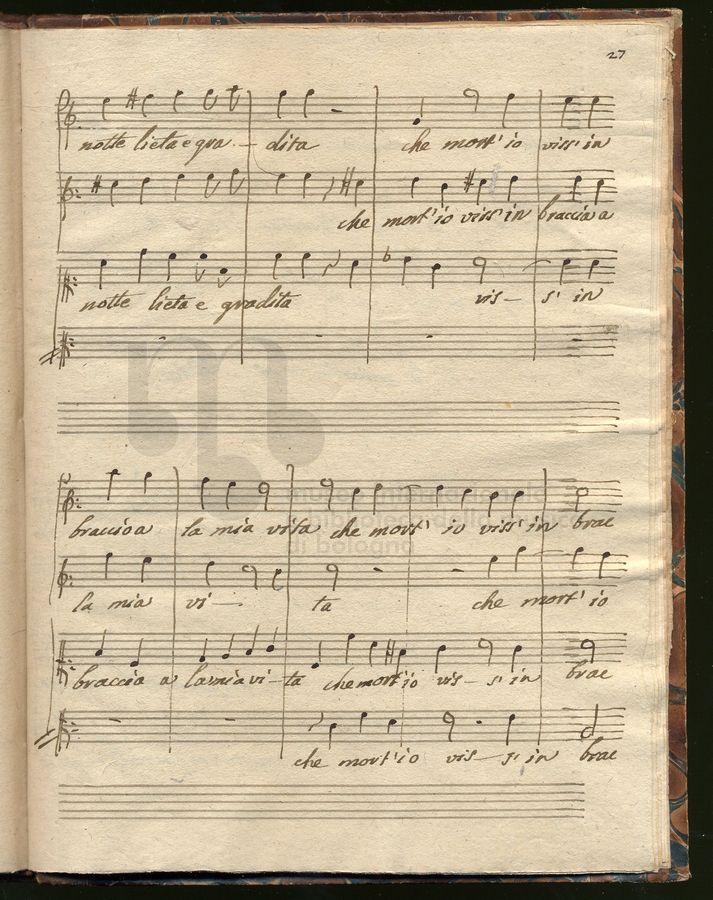 27
notte lieta e gra - dita che mort' io viss' in
che mort' io viss' in braccia a
notte lieta e gradita vis - s' in
braccio a la mia vita che mort' io viss' in brac
la mia vi - ta che mort' io
braccia a la mia vi - ta che mort' io vis - s' in brac
che mort' io vis - s' in brac
museo internazionale
di bologna